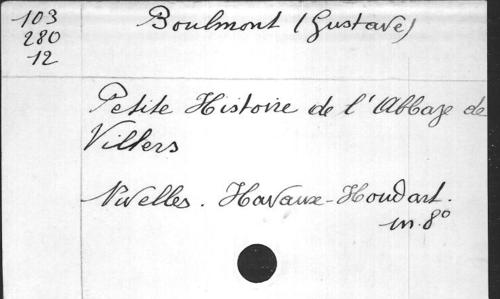 103
280
12
Boulmont (Gustave)
Petite Histoire de l'Abbaye de
Villers
Nivelles. Havaux-Houdart.
in. 8º